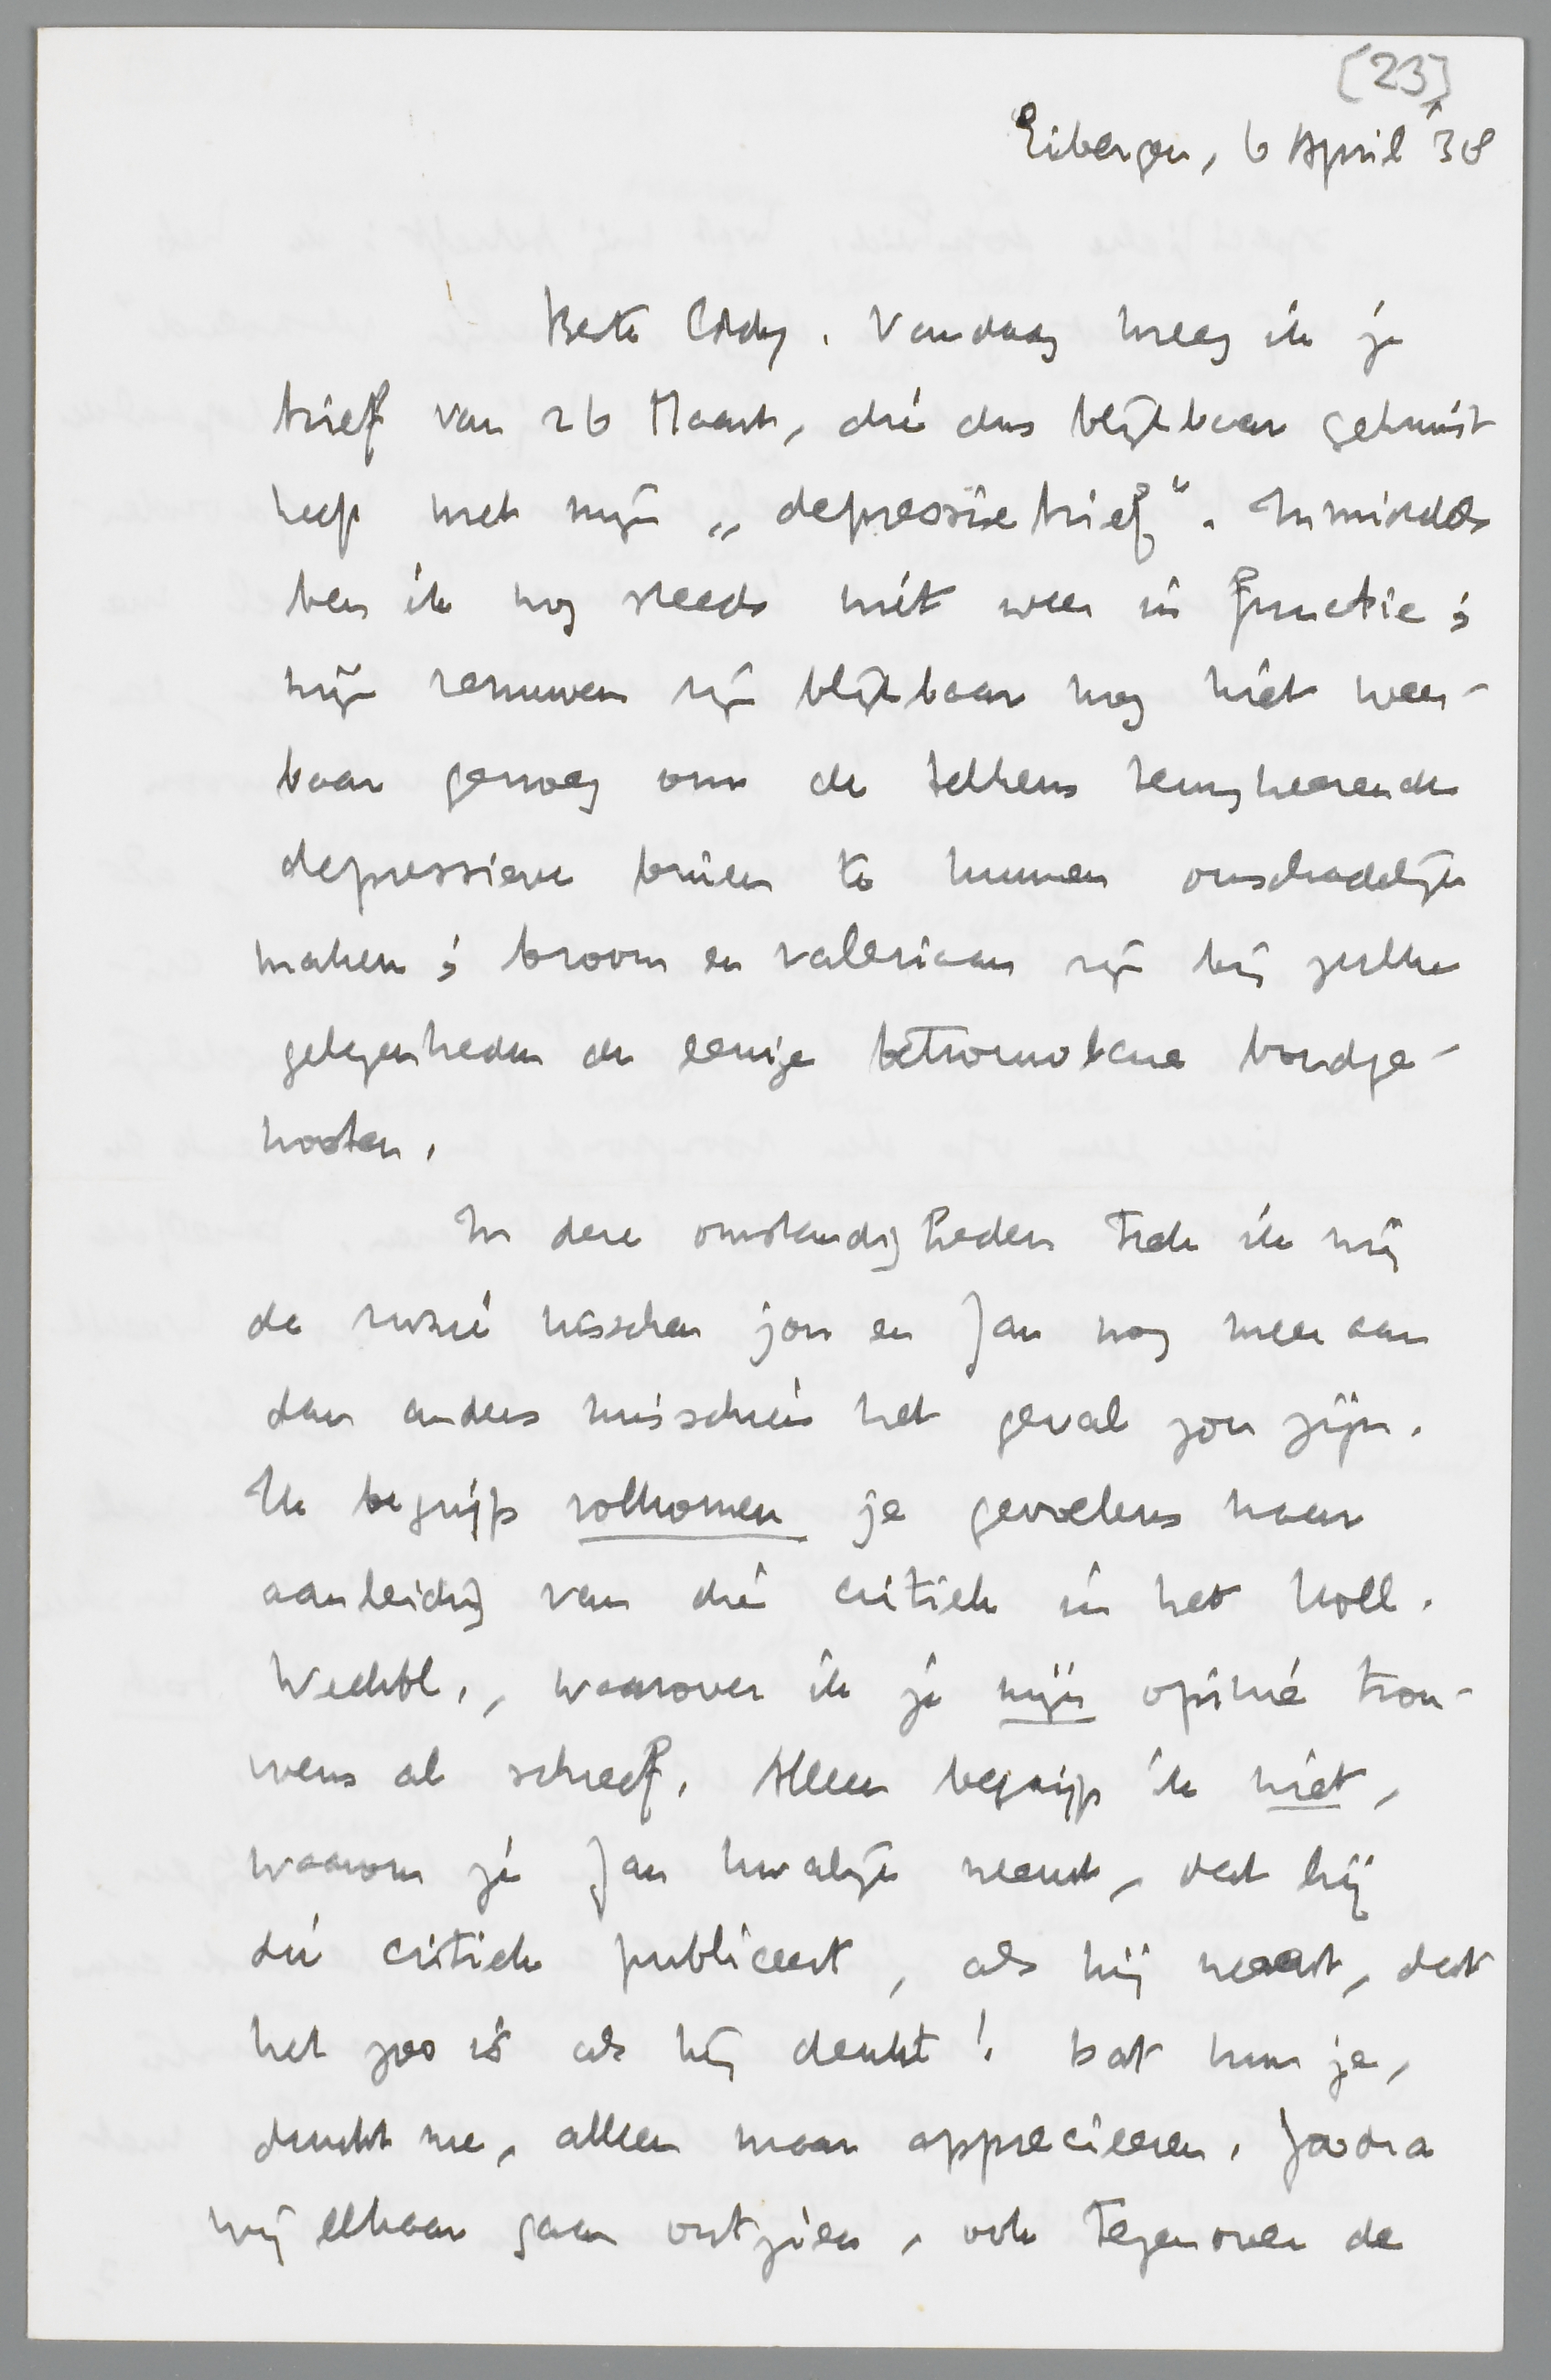 [23]
Eibergen, 6 April '38
Beste Cody. Vandaag kreeg ik je
brief van 26 Maart, die dus blijkbaar gekruist
heeft met mijn „depressiebrief". Inmiddels
ben ik nog steeds niet weer in functie;
mijn zenuwen zijn blijkbaar nog niet weer-
baar genoeg om de telkens terugkeerende
depressieve buien te kunnen onschadelijk
maken; broom en valeriaan zijn bij zulke
gelegenheden de eenige betrouwbare bondge-
nooten.
In deze omstandigheden trek ik mij
de ruzie tusschen jou en Jan nog meer aan
dan anders misschien het geval zou zijn.
Ik begrijp volkomen je gevoelens naar
aanleiding van die critiek in het Holl.
Weekbl., waarover ik je mijn opinie trou-
wens al schreef. Alleen begrijp ik niet,
waarom je Jan kwalijk neemt, dat hij
die critiek publiceert, als hij meent, dat
het zoo is als hij denkt! Dat kun je,
dunkt me, alleen maar apprecieeren. Zoodra
wij elkaar gaan ontzien, ook tegenover de